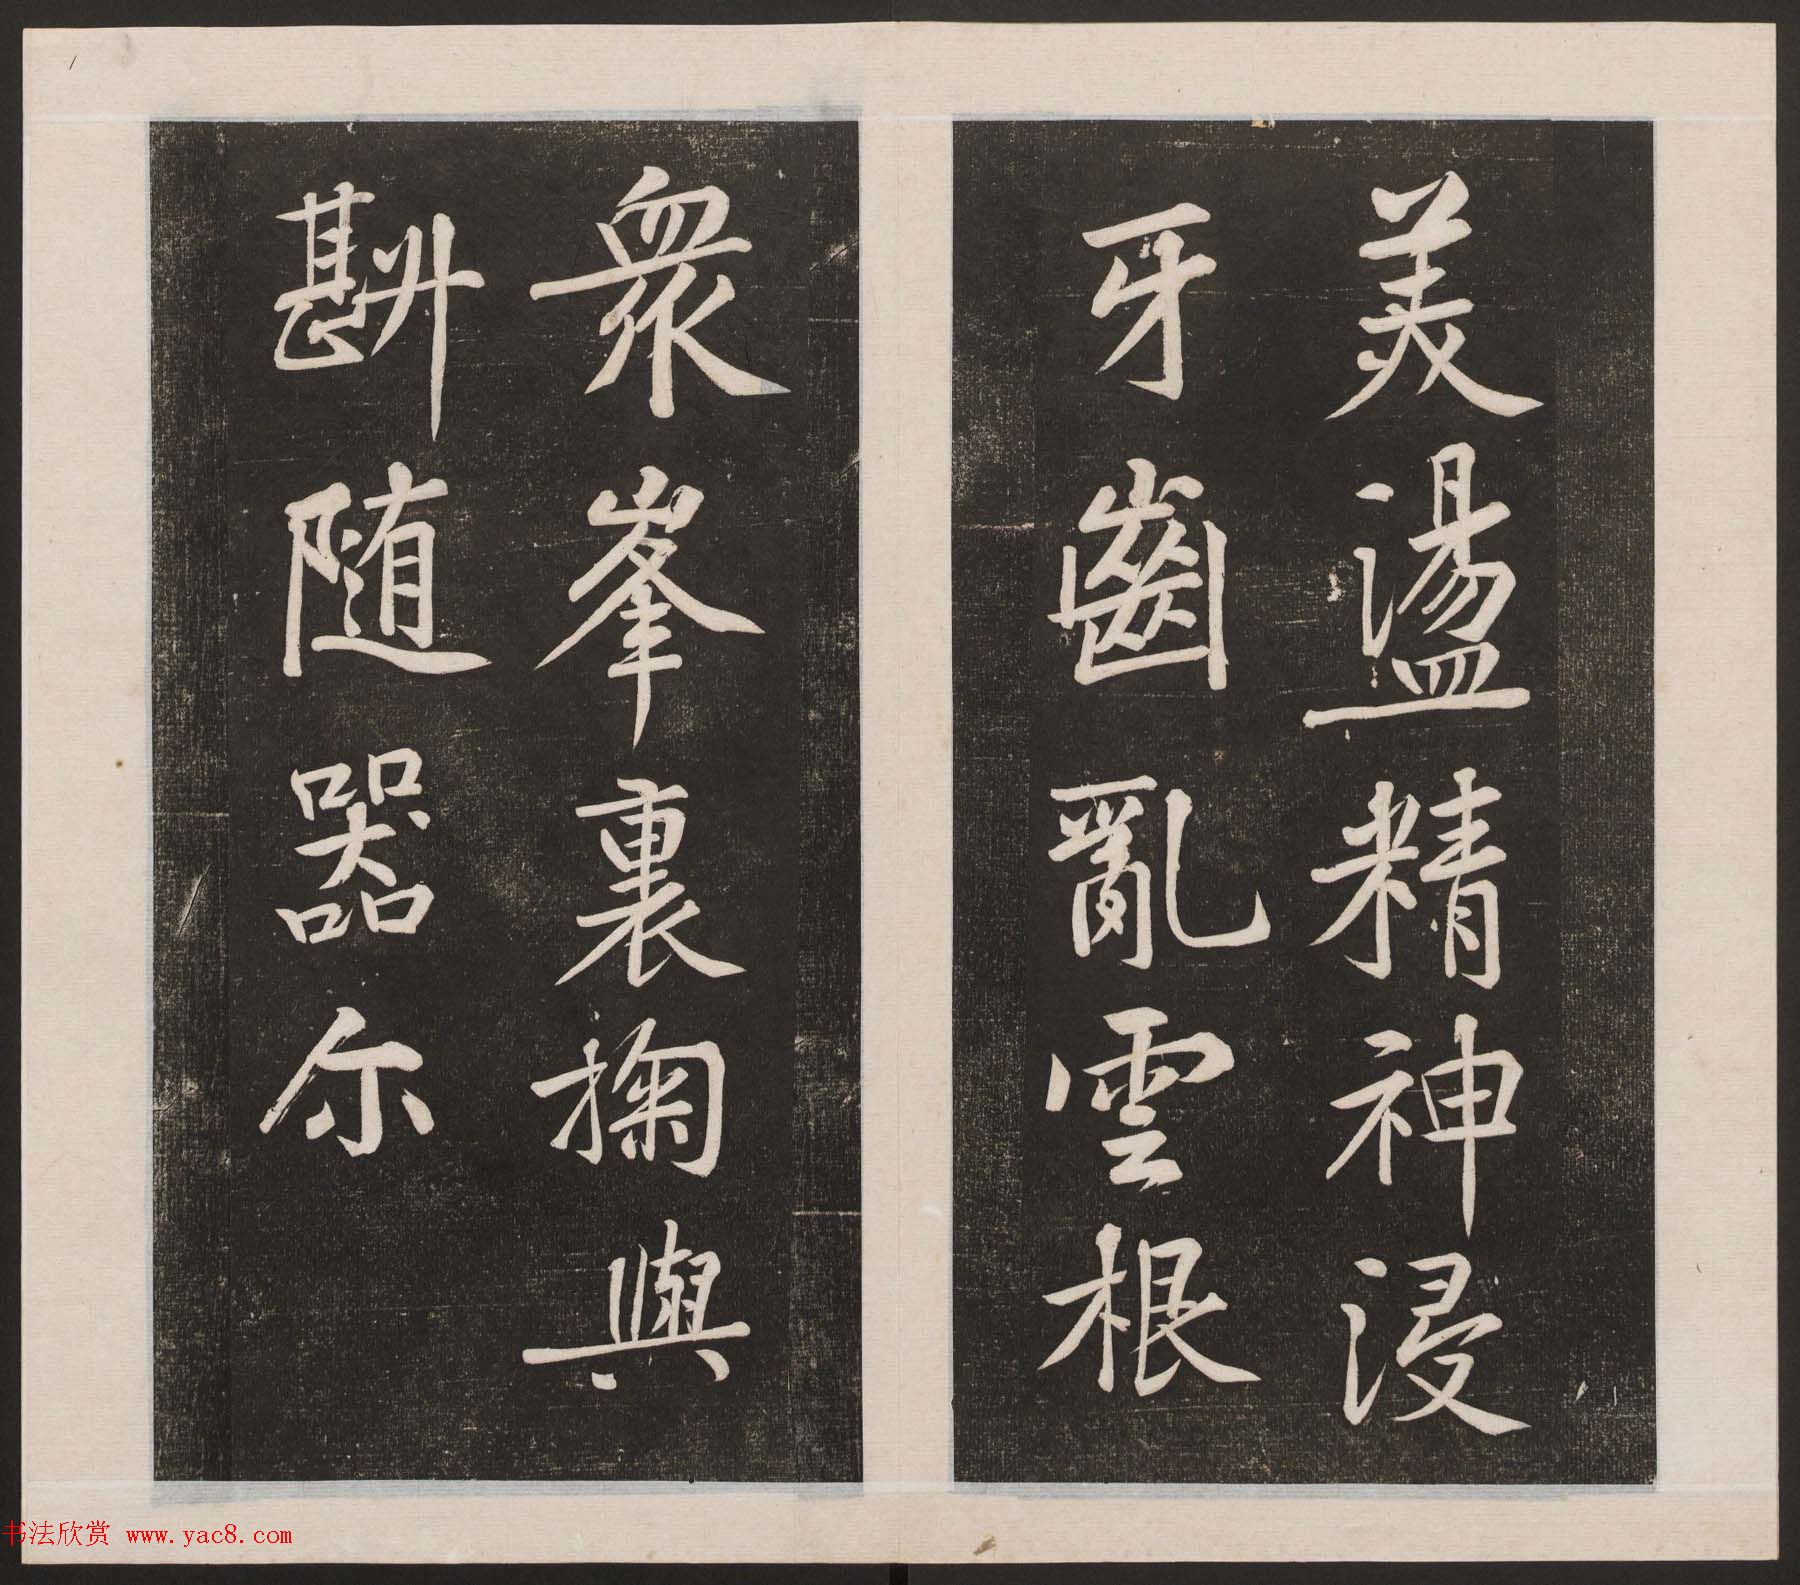 美盪精神浸
牙齒亂雲根
眾峯裏掬與
斟随器尓
书法欣赏 www.yac8.com